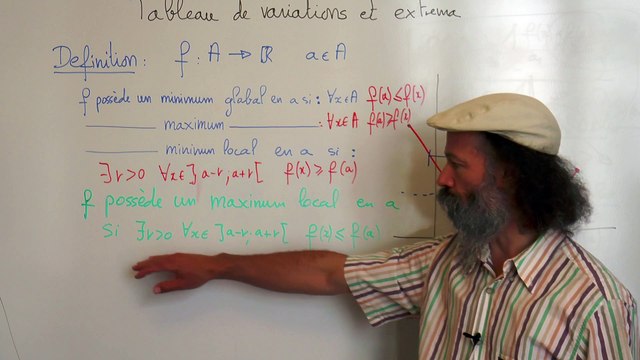 Tableau de variations et extrema
Definition : f : A → ℝ a ∈ A
f possède un minimum global en a si : ∀x∈A f(a) ≤ f(x)
——— maximum ——— : ∀x∈A f(a) ≥ f(x)
——— minimum local en a si :
∃ r>0 ∀x∈ ]a-r, a+r[ f(x) ≥ f(a)
f possède un maximum local en a
si ∃ r>0 ∀x∈ ]a-r, a+r[ f(x) ≤ f(a)